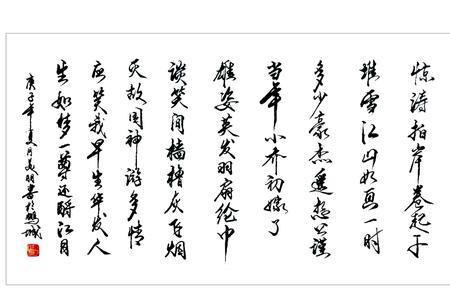 惊涛拍岸卷起千
堆雪江山如画一时
多少豪杰遥想公谨
当年小乔初嫁了
雄姿英发羽扇纶巾
谈笑间樯橹灰飞烟
灭故国神游多情
应笑我早生华发人
生如梦一尊还酹江月
庚子年夏月明书于鹏城